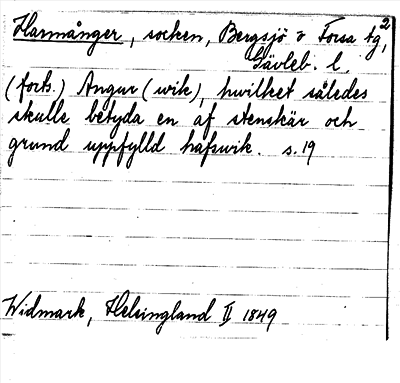 Harmånger, socken, Bergsjö o Forsa tg, 2
Gävleb. l.
(forts.) Angur (wik), hwilket således
skulle betyda en af stenskär och
grund uppfylld hafswik. s. 19
Widmark, Helsingland II 1849